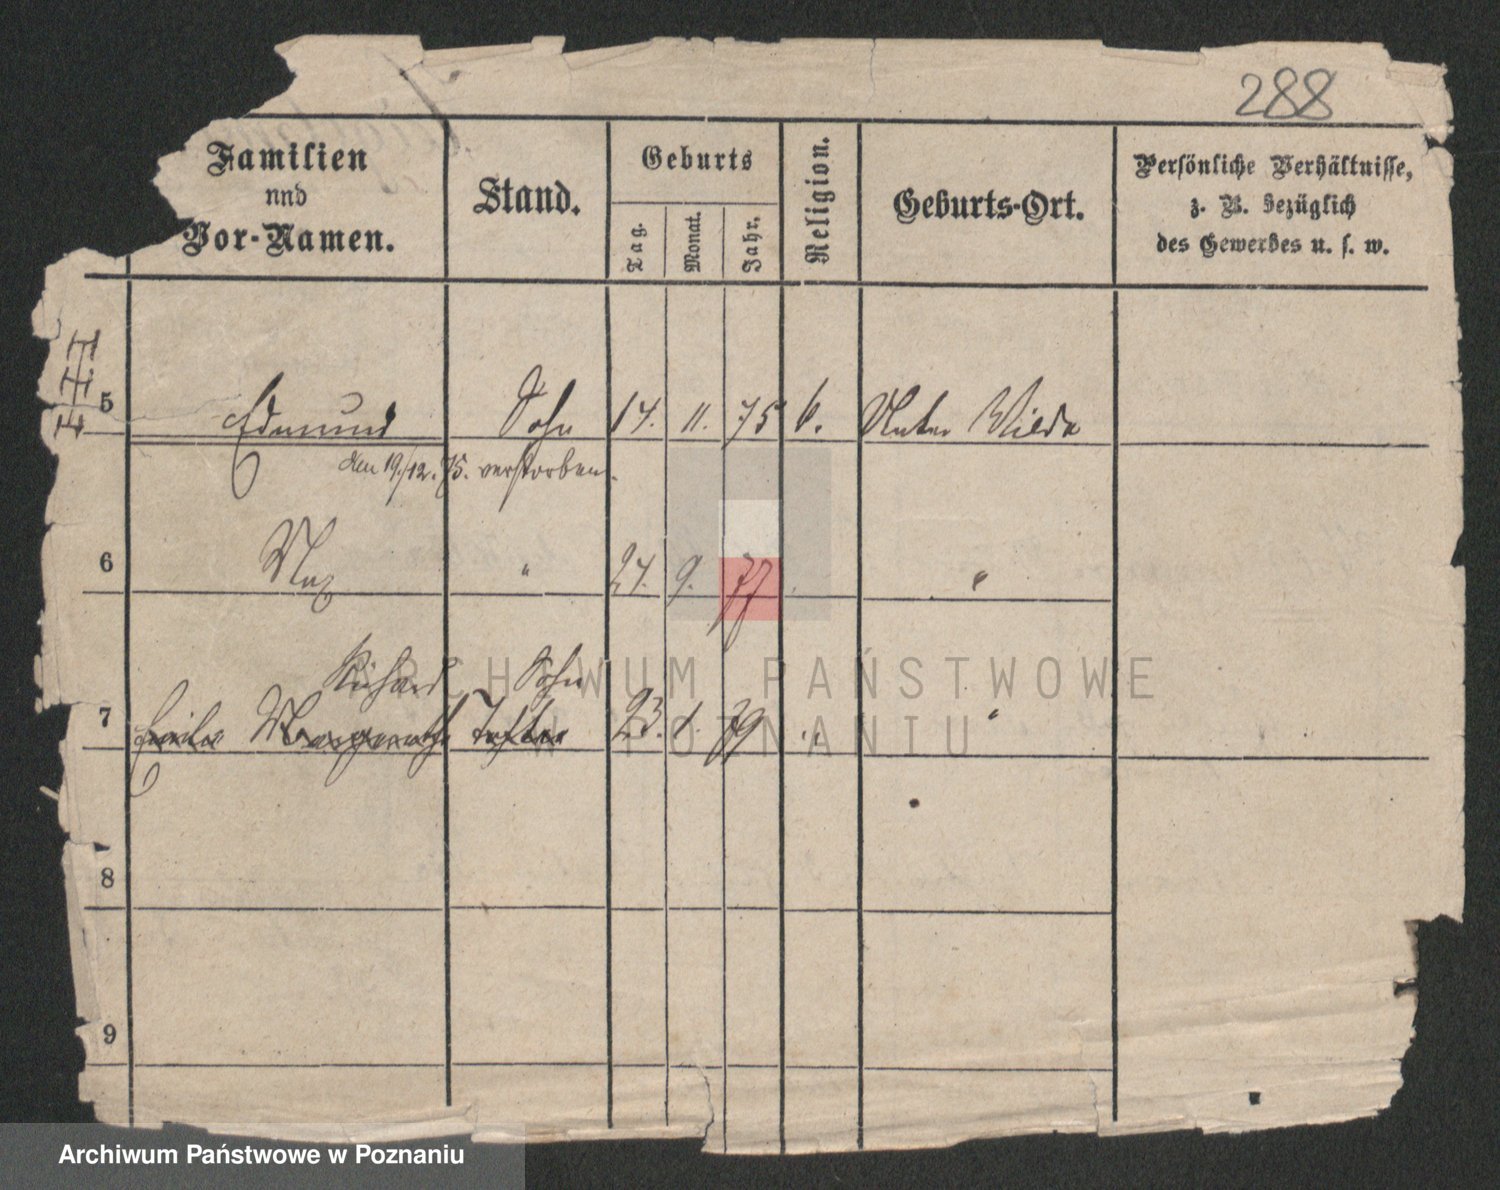 288
Familien
und
Vor-Namen.
Stand.
Geburts
Tag.
Monat.
Jahr.
Religion.
Geburts-Ort.
Persönliche Verhältnisse,
z. B. bezüglich
des Gewerbes u. s. w.
5 Edmund Sohn 14. 11. 75 Unter Wilda
den 19./12. 75. verstorben.
6 Max " 24. 9. 77 "
Richard Sohn
7 Margarethe Tochter 23. 1. 79 "
8
9
ARCHIWUM PAŃSTWOWE
W POZNANIU
Archiwum Państwowe w Poznaniu